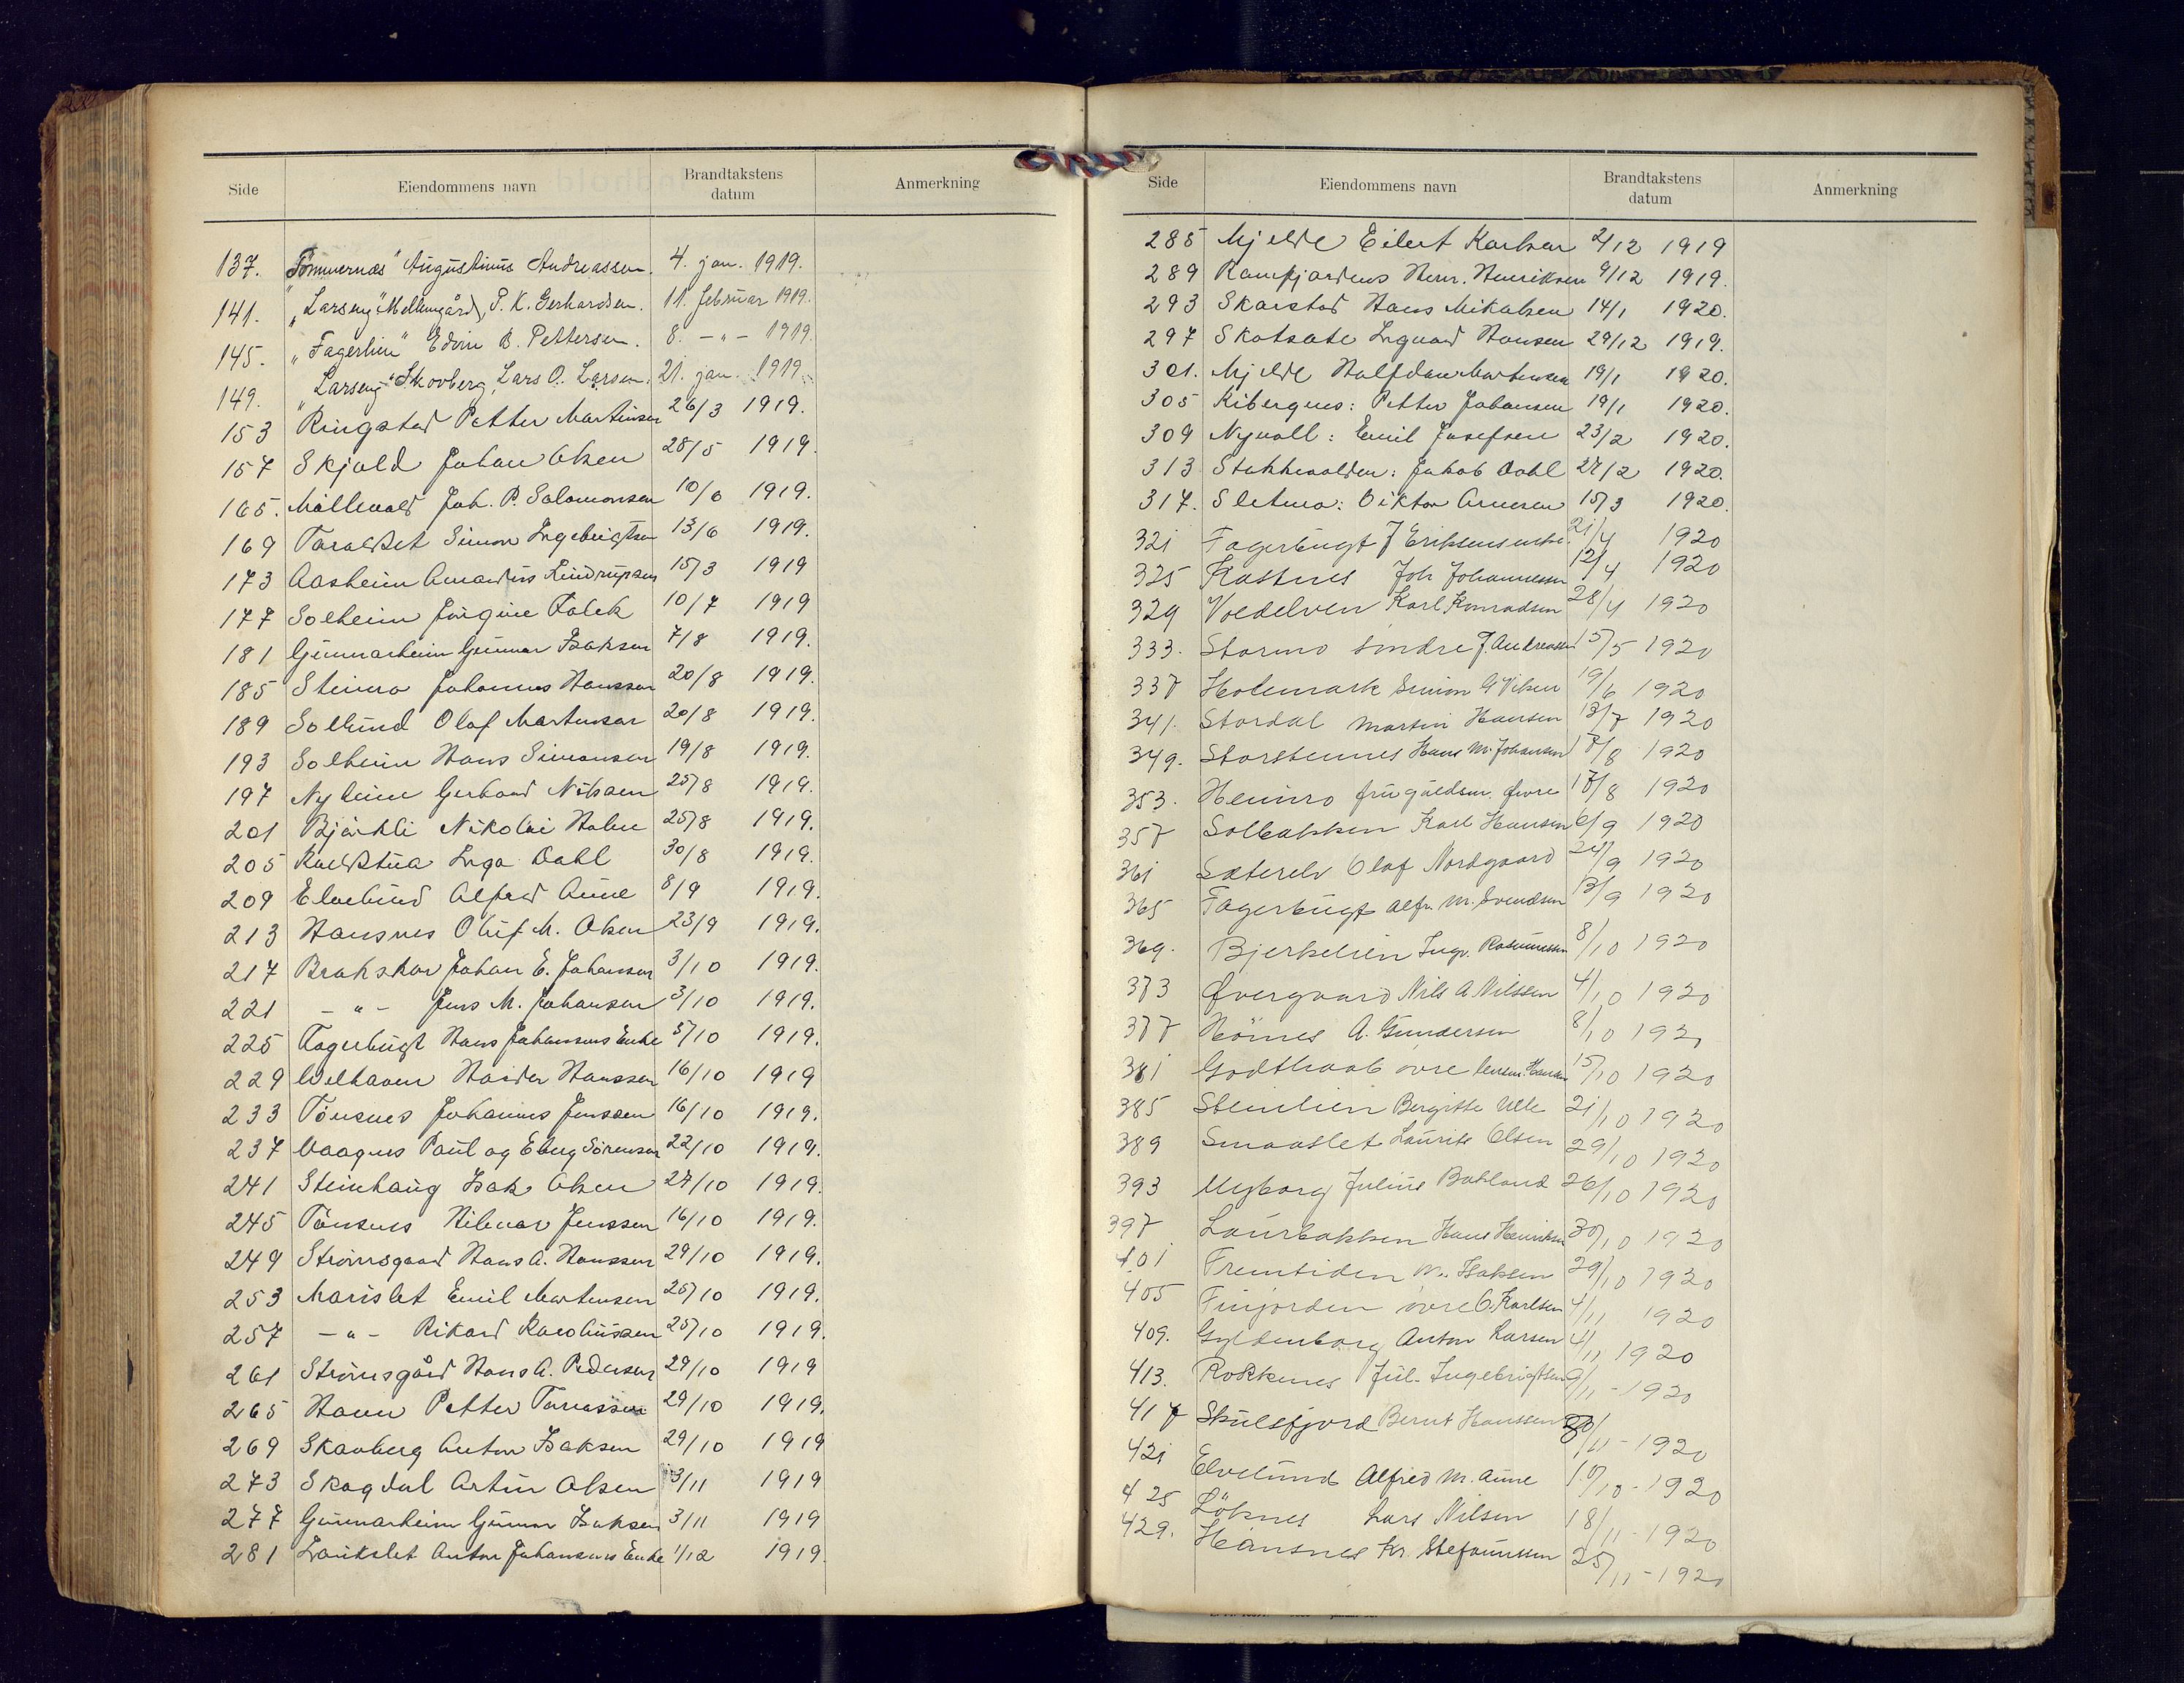 Side Eiendommens navn Brandtakstens datum Anmerkning
137. "Tömmernæs" Augustinus Andreassen. 4. jan. 1919.
141. "Larseng" Mellemgård, P. K. Gerhardsen. 11. februar 1919.
145. "Fagerlien" Edvin B. Pettersen. 8. -"- 1919.
149. "Larseng" Skovberg, Lars O. Larsen. 21. jan. 1919.
153 Ringstad Petter Martinsen 26/3 1919.
157 Skjold Johan Olsen 28/5 1919.
165. Mållevold Joh. P. Salomonsen 10/6 1919.
169 Taraldset Simon Ingebrigtsen 13/6 1919.
173 Aasheim Amandus Lindrupsen 15/3 1919
177 Solheim Jörgine Falck 10/7 1919
181 Gunnarheim Gunnar Isaksen 7/8 1919.
185 Steinmo Johannes Hanssen 20/8 1919.
189 Sollund Olaf Martinsen 20/8 1919.
193 Solheim Hans Simonsen 19/8 1919.
197 Nyheim Gerhard Nilsen 25/8 1919.
201 Bjørkli Nikolai Holm 25/8 1919.
205 Inga Dahl 30/8 1919.
209 Elvelund Alfred Aune 8/9 1919.
213 Hansnes Oluf M. Olsen 23/9 1919.
217 Brakskar Johan E. Johansen 3/10 1919.
221 -"- Jens M. Johansen 3/10 1919.
225 Fagerbugt Hans Johansens Enke 5/10 1919.
229 Welhaven Haider Hanssen 16/10 1919
233 Tönsnes Johannes Jenssen 16/10 1919.
237 Vaagnes Paul og Eberg Sörensen 22/10 1919.
241 Steinhaug Isak Olsen 27/10 1919.
245 Tönsnes Hilmar Jenssen 16/10 1919.
249 Strömsgaard Hans A. Hanssen 29/10 1919.
253 Marislet Emil Martinsen 25/10 1919.
257 -"- Rikard 25/10 1919.
261 Strömsgård Hans A. Pedersen 29/10 1919
265 Haven Petter Tomassen 29/10 1919.
269 Skavberg Anton Isaksen 29/10 1919
273 Skogdal Artur Olsen 3/11 1919
277 Gunnarheim Gunnar Isaksen 3/11 1919
281 Laukslet Anton Johansens Enke 1/12 1919.
Side Eiendommens navn Brandtakstens datum Anmerkning
285 Mjelde Eilert Karlsen 2/12 1919
289 Ramfjordnes Herm. Henriksen 9/12 1919.
293 Skarstad Hans Mikalsen 14/1 1920.
297 Skatsate Ingvard Hansen 29/12 1919.
301. Mjelde Halfdan Martinsen 19/1 1920.
305 Kibergnes: Petter Johansen 19/1 1920.
309 Nyvoll: Emil Josefsen 23/2 1920.
313 Stakkevolden: Jakob Dahl 27/2 1920.
317. Sletmo: Viktor Arnesen 15/3 1920.
321 Fagerbugt J Eriksens enke. 21/4 1920
325 Kastnes Joh Johannessen 12/4 1920
329 Voedelven Karl Konradsen 28/4 1920
333. Stormo söndre J. Andreassen 15/5 1920
337 Holemark Simon G Viken 19/6 1920
341. Stordal Martin Hansen 13/7 1920
349. Storstennes Hans M. Johansen 17/8 1920
353. Heimro øvre 17/8 1920
357 Solbakken Karl Hansen 6/9 1920
361 Sæterelv Olaf Nordgaard 24/9 1920
365 Fagerbugt Alfr. M. Svendsen 13/9 1920
369. Bjerkelien Ingv. Rasmussen 8/10 1920
373 Øvergaard Nils A Nilssen 4/10 1920
377 Hömes A. Gundersen 8/10 1920
381 Godthaab övre Hansen 15/10 1920
385 Stenlien Bergitte Ulle 21/10 1920
389 Smaaslet Laurits Olsen 29/10 1920
393 Nyborg Julius Bakland 26/10 1920
397 Laurbakken Hans Henriksen 30/10 1920
401 Fremtiden M. Isaksen 29/10 1920
405 Finjorden övre O. Karlsen 4/11 1920
409. Gyldenborg Anton Larsen 4/11 1920
413. Rokkenes Jul. Ingebrigtsen 9/11 - 1920
417 Skulsfjord Bernt Hanssen 20/11 - 1920
421 Elvelund Alfred M. Aune 10/10 - 1920
425 Löknes Lars Nilsen 18/11 - 1920
429. Hansnes Kr. Stefanussen 25/11 - 1920